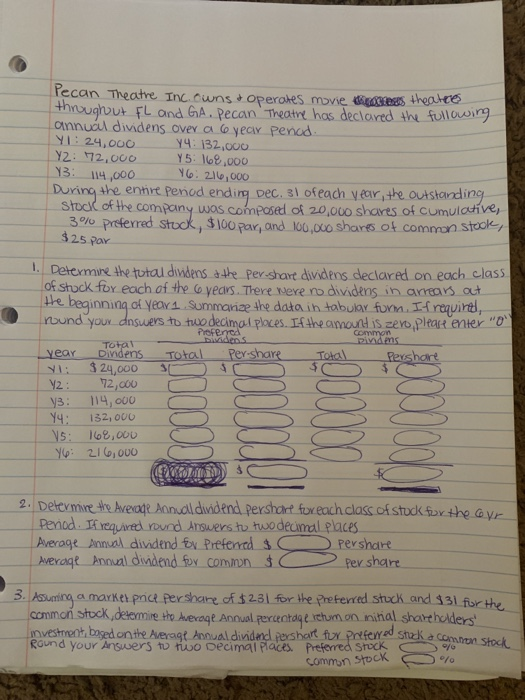 Pecan Theatre Inc. owns & operates movie theatres
throughout FL and GA. Pecan Theatre has declared the following
annual dividens over a 6 year period.
Y1: 24,000 Y4: 132,000
Y2: 72,000 Y5: 168,000
Y3: 114,000 Y6: 216,000
During the entire period ending Dec. 31 of each year, the outstanding
stock of the company was composed of 20,000 shares of cumulative,
3% preferred stock, $100 par, and 100,000 shares of common stock,
$25 par
1. Determine the total dividens & the per-share dividens declared on each class
of stock for each of the 6 years. There were no dividens in arrears at
the beginning of year 1. Summarize the data in tabular form. If required,
round your answers to two decimal places. If the amount is zero, please enter "0"
Preferred Dividens Common Dividens
Year Total Dividens Total Per-share Total Pershare
Y1: $24,000 $ $ $ $
Y2: 72,000
Y3: 114,000
Y4: 132,000
Y5: 168,000
Y6: 216,000
$ $
2. Determine the Average Annual dividend pershare for each class of stock for the 6 yr
Period. If required round Answers to two decimal places
Average Annual dividend for Preferred $ Per share
Average Annual dividend for common $ Per share
3. Assuming a market price per share of $231 for the preferred stock and $31 for the
common stock, determine the average Annual percentage return on initial shareholders'
investment, based on the Average Annual dividend pershare for preferred stock & common stock
Round your Answers to two Decimal Places. Preferred stock %
Common stock %